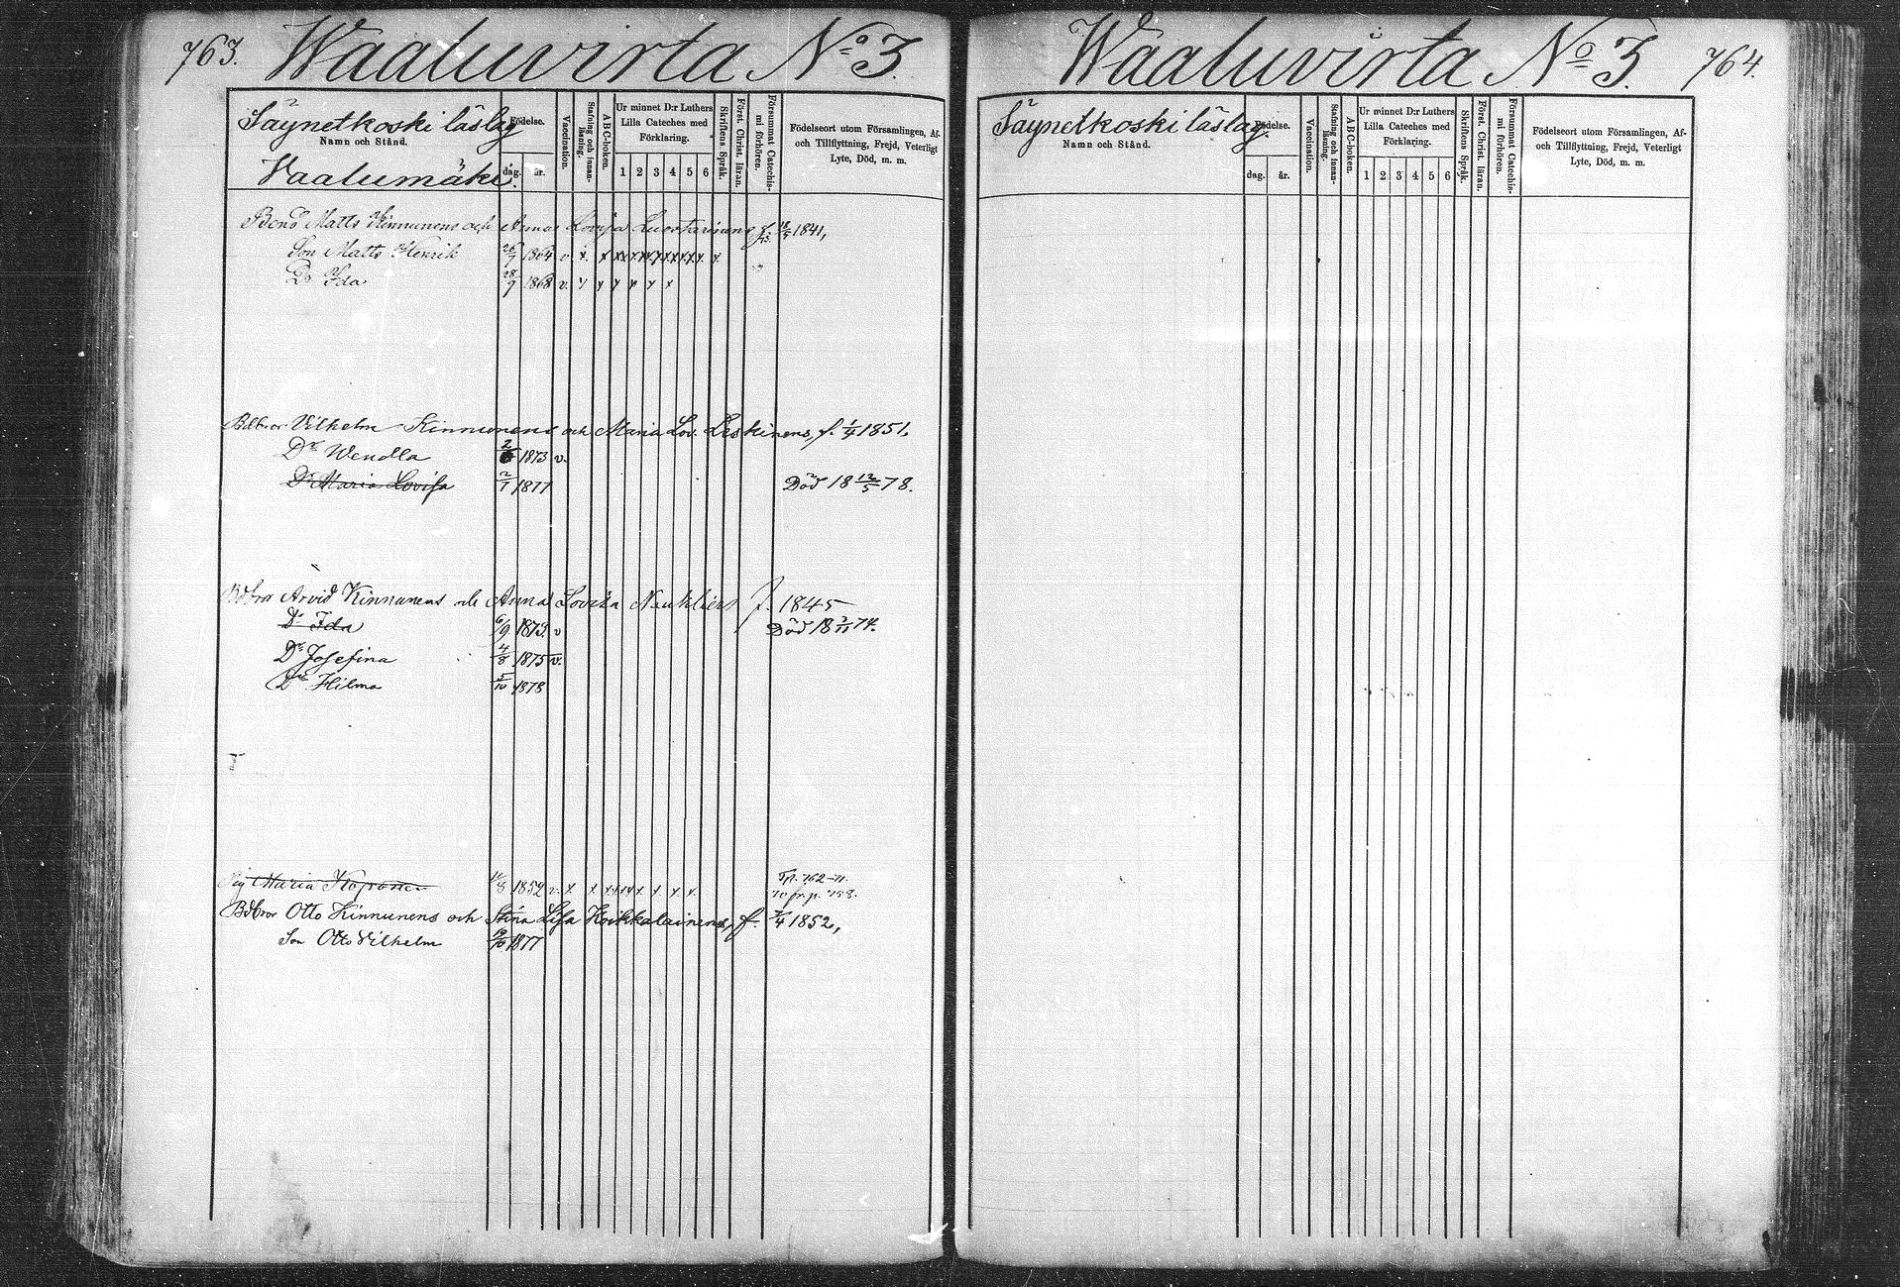 763. Waaluvirta No 3.
Säynetkoski läslag
Namn och Stånd.
Vaalumäki.
Födelse.
dag. år.
Vaccination.
Stafning och innan-läsning.
ABC-boken.
Ur minnet D:r Luthers
Lilla Cateches med
Förklaring.
1 2 3 4 5 6
Skriftens Språk.
Först. Christ. läran.
Försummat Catechis-mi förhören.
Födelseort utom Församlingen, Af-
och Tillflyttning, Frejd, Veterligt
Lyte, Död, m. m.
Bond Matts Kinnunens och Anna Lovisa Luostarinens f. 1841,
Son Matts Henrik 26/7 1864 v. x. x x x x x x x x x x x
Do Ida 28/9 1868 v. x x x x x x
Bdbror Vilhelm Kinnunens och Maria Lov. Leskinens, f. 1/4 1851,
Dr Wendla 1873 v.
Dr Maria Lovisa 2/1 1877 Död 18 12/5 78.
Bdbror Arvid Kinnunens och Anna Lovisa f. 1845
Dr Ida 6/9 1873. v Död 18 74.
Dr Josefina 4/8 1875 v.
Dr Hilma 5/10 1878
Pig Maria Koponen 1852 v. x x x x x x x x x Fr. p. 762-71.
Bdbror Otto Kinnunens och Stina Lisa Heikkalainens, f. 1852,
Son Otto Vilhelm 19/10 1877
Waaluvirta No 3. 764.
Säynetkoski läslag.
Namn och Stånd.
Födelse.
dag. år.
Vaccination.
Stafning och innan-läsning.
ABC-boken.
Ur minnet D:r Luthers
Lilla Cateches med
Förklaring.
1 2 3 4 5 6
Skriftens Språk.
Först. Christ. läran.
Försummat Catechis-mi förhören.
Födelseort utom Församlingen, Af-
och Tillflyttning, Frejd, Veterligt
Lyte, Död, m. m.